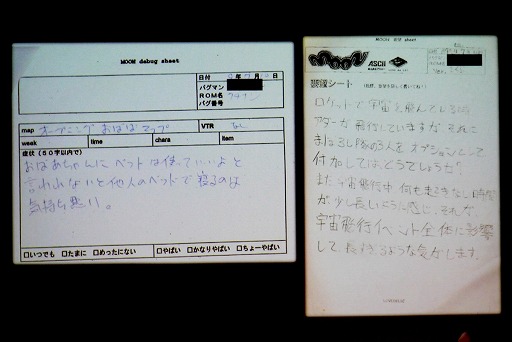 MOON debug sheet
日付 9年7月 日
バグマン
ROM名
バグ番号
map オープニング おばばマップ
VTR なし
week time chara item
症状(50字以内で)
おばあちゃんにベットは使っていいよと
言われないと他人のベッドで寝るのは
気持ち悪い。
□いつでも □たまに □めったにない
□やばい □かなりやばい □ちょーやばい
MOON 要望 sheet
MOON
ASCII
要望シート
ロケットで宇宙を飛んでいる時
アダーが飛行していますが、それに
まるぶし隊の3人をオプションとして
付加してはどうでしょうか?
また宇宙飛行中、何も起きない時間
が少し長いように感じ、それが
宇宙飛行イベント全体に影響
して、長すぎるような気がします。